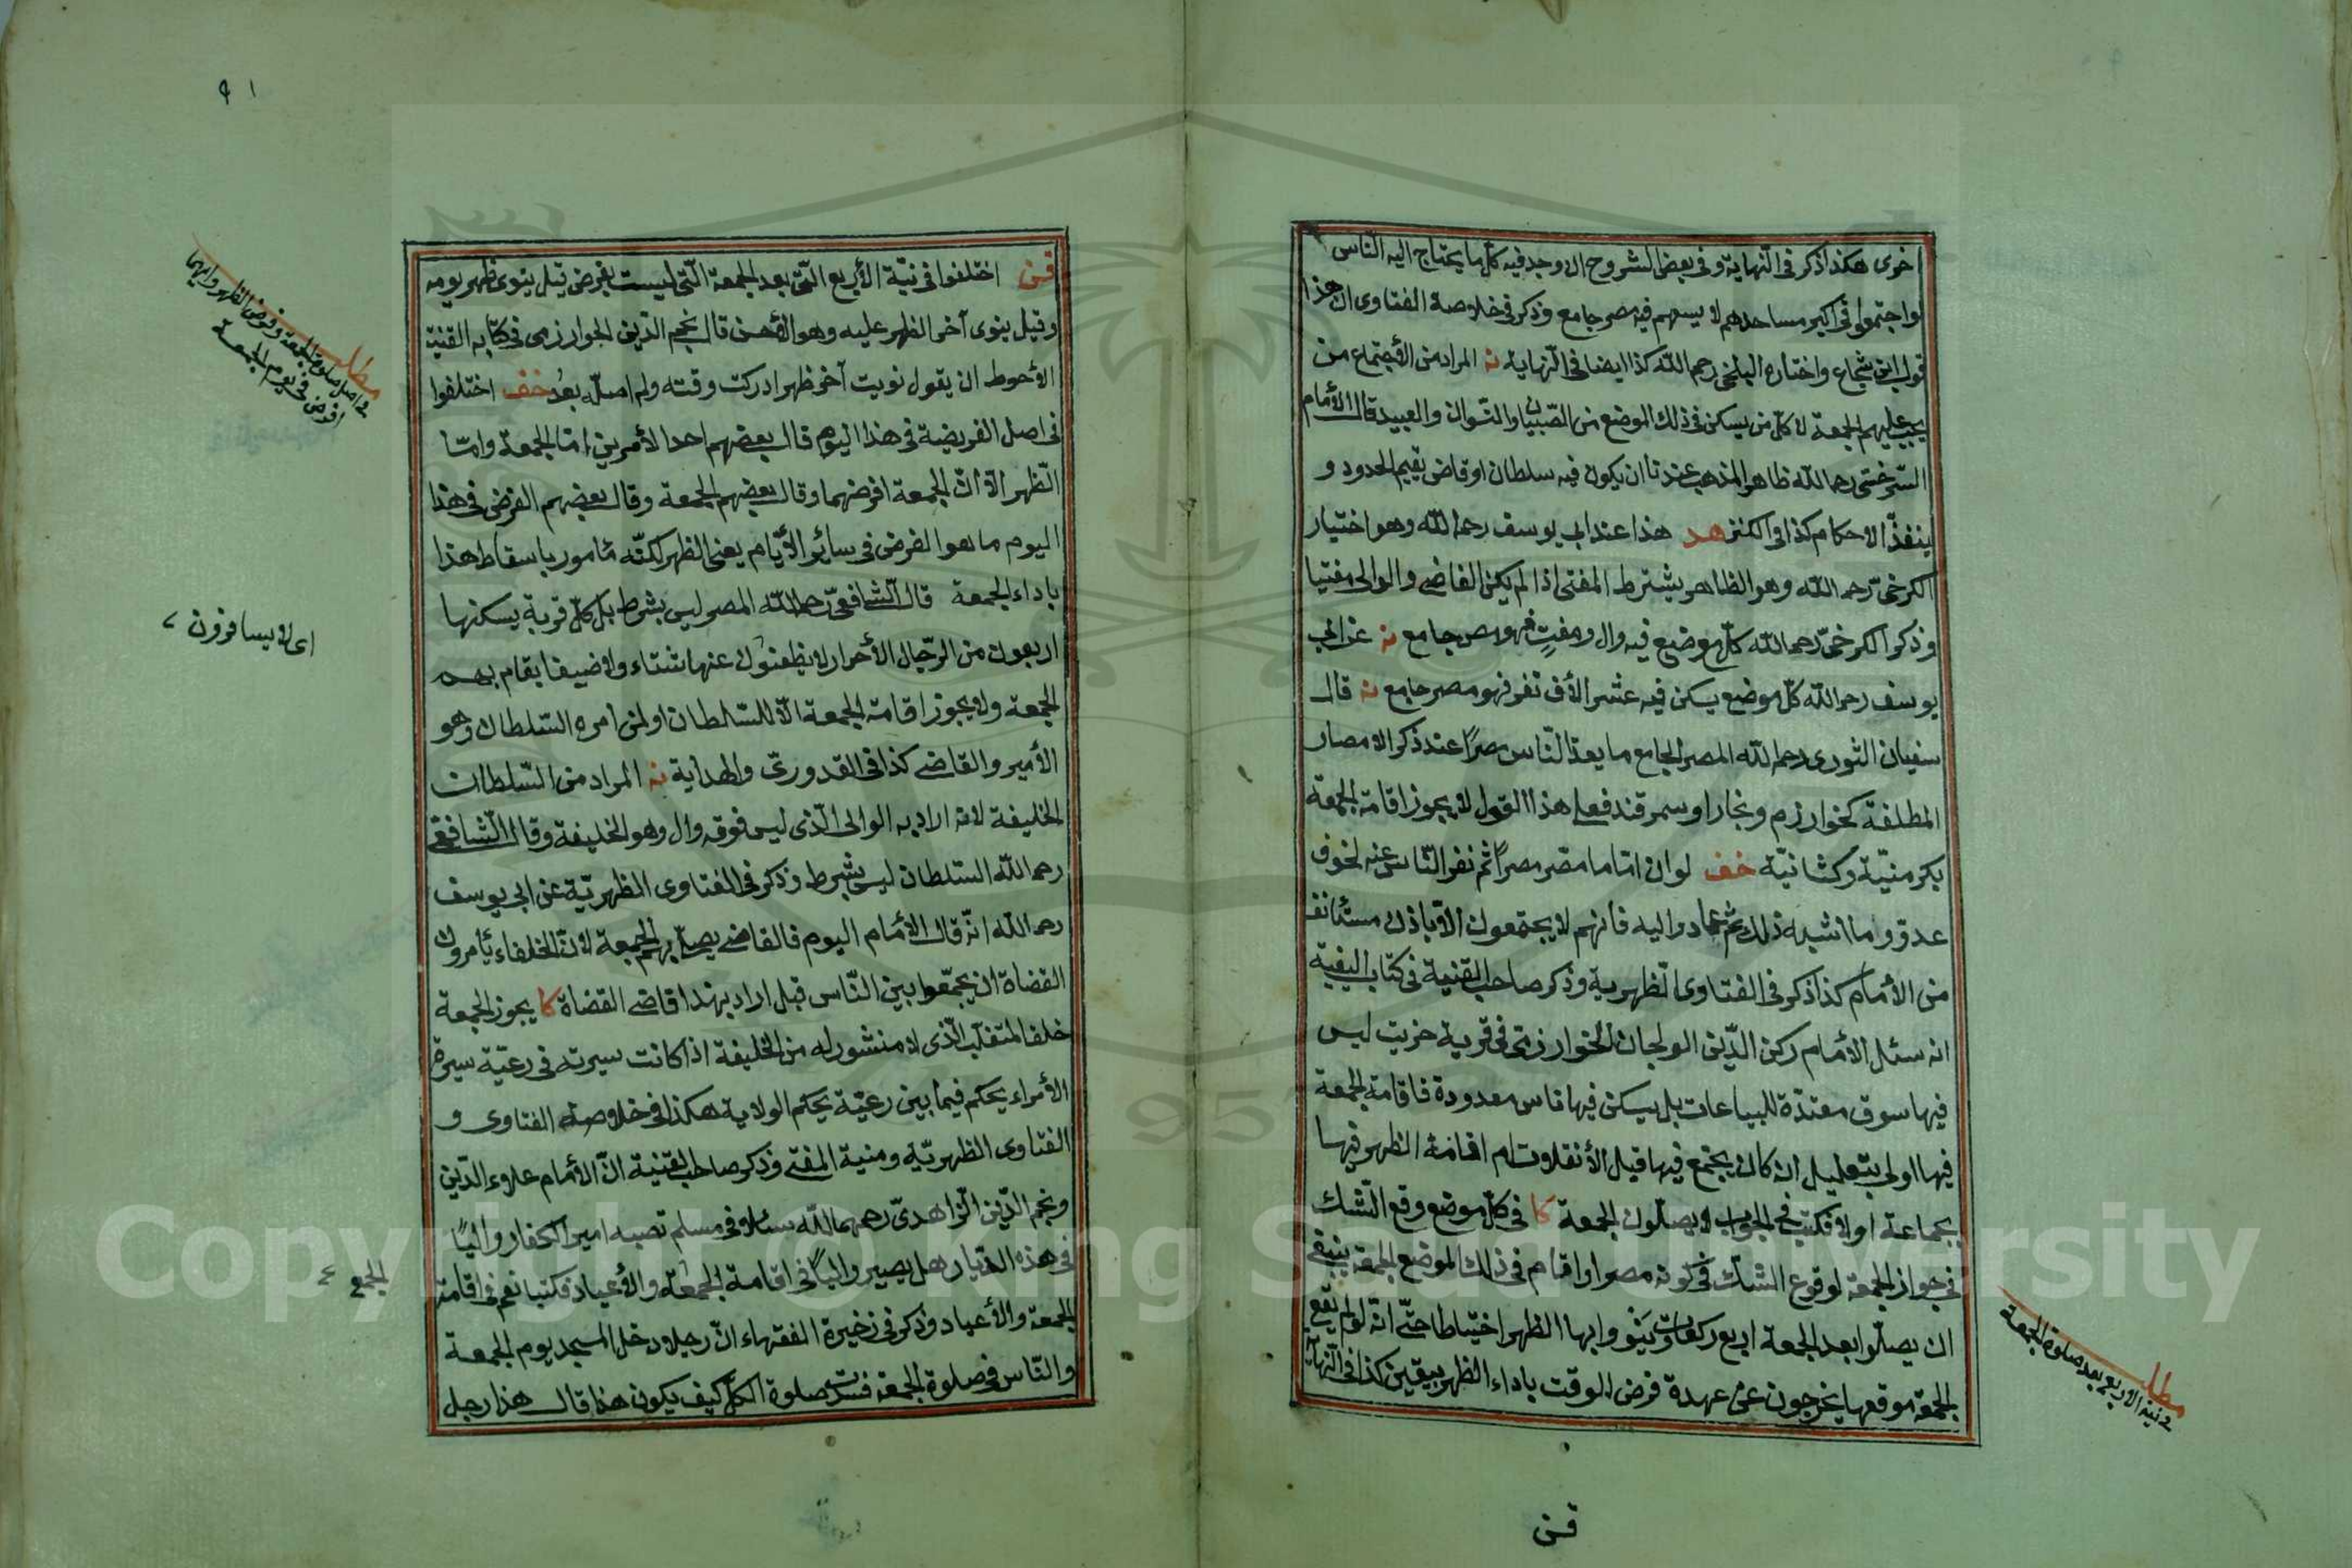 اخرى هكذا ذكر فى النهاية وفى بعض الشروح ان وجد فيه كل ما يحتاج اليه الناس
لو اجتمعوا فى اكبر مساجدهم لا يسعهم فهو مصر جامع وذكر فى خلاصة الفتاوى ان هذا
قول ابن شجاع واختاره البلخى رحمه الله كذا ايضا فى النهاية نه المراد من الأجتماع من
يجب عليهم الجمعة لا كل من يسكن فى ذلك الموضع من الصبيان والنسوان والعبيد قال الأمام
السرخسى رحمه الله ظاهر المذهب عندنا ان يكون فيه سلطان او قاض يقيم الحدود و
ينفذ الاحكام كذا فى الكنز هد هذا عند ابى يوسف رحمه الله وهو اختيار
الكرخى رحمه الله وهو الظاهر يشترط المفتى اذا لم يكن القاضى والوالى مفتيا
وذكر الكرخى رحمه الله كل موضع فيه وال ومفت فهو مصر جامع نه عن ابى
يوسف رحمه الله كل موضع يسكن فيه عشر الأف نفر فهو مصر جامع نه قال
سفيان الثورى رحمه الله المصر الجامع ما يعد الناس مصرًا عند ذكر الامصار
المطلقة كخوارزم وبخارا وسمرقند فعلى هذا القول لا يجوز اقامة الجمعة
بكرمنيّة وكشانيّة خف لو ان اماما مصّر مصرًا ثم نفر الناس عنه لخوف
عدوّ وما اشبه ذلك ثم عادوا اليه فانهم لا يجتمعون الا باذن مستأنف
من الأمام كذا ذكر فى الفتاوى الظهيرية وذكر صاحب القنية فى كتاب البغية
انه سئل الأمام ركن الدّين الولجان الخوارزمى فى قرية خربت ليس
فيها سوق معتدّة للبياعات بل يسكن فيها ناس معدودة فاقامة الجمعة
فيها اولى بتعليل ان كان يجتمع فيها قبل الأنقلاب ام اقامة الظهر فيها
بجماعة اولا فكتب فى الجواب لا يصلّون الجمعة كا فى كلّ موضع وقع الشك
فى جواز الجمعة لوقوع الشك فى كونه مصرا واقام فى ذلك الموضع الجمعة ينبغى
ان يصلّوا بعد الجمعة اربع ركعات ينووا بها الظهر احتياطا حتى انه لو لم تقع
الجمعة موقعها يخرجون عن عهدة فرض الوقت باداء الظهر بيقين كذا فى النهاية
مطلب
فى نية الاربع بعد صلوة الجمعة
قن
٩١
قن اختلفوا فى نيّة الأربع التى بعد الجمعة التى ليست بفرض قيل ينوى ظهر يومه
وقيل ينوى آخر الظهر عليه وهو الأحسن قال نجم الدّين الخوارزمى فى كتابه القنية
الأحوط ان يقول نويت آخر ظهر ادركت وقته ولم اصلّه بعد خف اختلفوا
فى اصل الفريضة فى هذا اليوم قال بعضهم احد الأمرين امّا الجمعة وامّا
الظهر الّا انّ الجمعة افرضهما وقال بعضهم الجمعة وقال بعضهم الفرض فى هذا
اليوم ما هو الفرض فى سائر الأيّام يعنى الظهر لكنّه مأمور باسقاط هذا
باداء الجمعة قال الشافعىّ رحمه الله المصر ليس بشرط بل كلّ قرية يسكنها
اربعون من الرّجال الأحرار لا يظعنون عنها شتاء ولا ضيفا يقام بهم
الجمعة ولا يجوز اقامة الجمعة الّا للسّلطان او لمن امره السّلطان وهو
الأمير والقاضى كذا فى القدورىّ والهداية نه المراد من السّلطان
الخليفة لانه اراد به الوالى الّذى ليس فوقه وال وهو الخليفة وقال الشافعى
رحمه الله السّلطان ليس بشرط وذكر فى الفتاوى الظهيريّة عن ابى يوسف
رحمه الله انّه قال الأمام اليوم فالقاضى يصلّى بهم الجمعة لانّ الخلفاء يأمرون
القضاة ان يجمّعوا بين النّاس قيل اراد بهذا قاضى القضاة كا يجوز الجمعة
خلف المتغلّب الّذى لا منشور له من الخليفة اذا كانت سيرته فى رعيّة سيرة
الأمراء يحكم فيما بين رعيّة بحكم الولاية هكذا فى خلاصة الفتاوى و
الفتاوى الظهيريّة ومنية المفتى وذكر صاحب القنية انّ الأمام علاء الدّين
ونجم الدّين الزّاهدىّ رحمهما الله سئلا فى مسلم نصبه امير الكفار واليًا
فى هذه الدّيار هل يصير واليًا فى اقامة الجمعة والأعياد فكتبا نعم فى اقامة
الجمعة والأعياد وذكر فى ذخيرة الفقهاء انّ رجلا دخل المسجد يوم الجمعة
والنّاس فى صلوة الجمعة فسدت صلوة الكلّ كيف يكون هذا قال هذا رجل
مطلب
فى اصل صلوة الجمعة وفرض الظهر وايهما
افرض فى يوم الجمعة
اى لا يسافرون
الجمع
Copyright © King Saud University